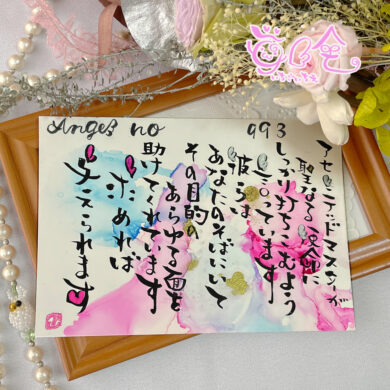 Angel no 993
アセンデッドマスターが
聖なる使命に
しっかり打ちこむよう
言っています
彼らは
あなたのそばにいて
その目的の
あらゆる面を
助けてくれています
求めれば
与えられます